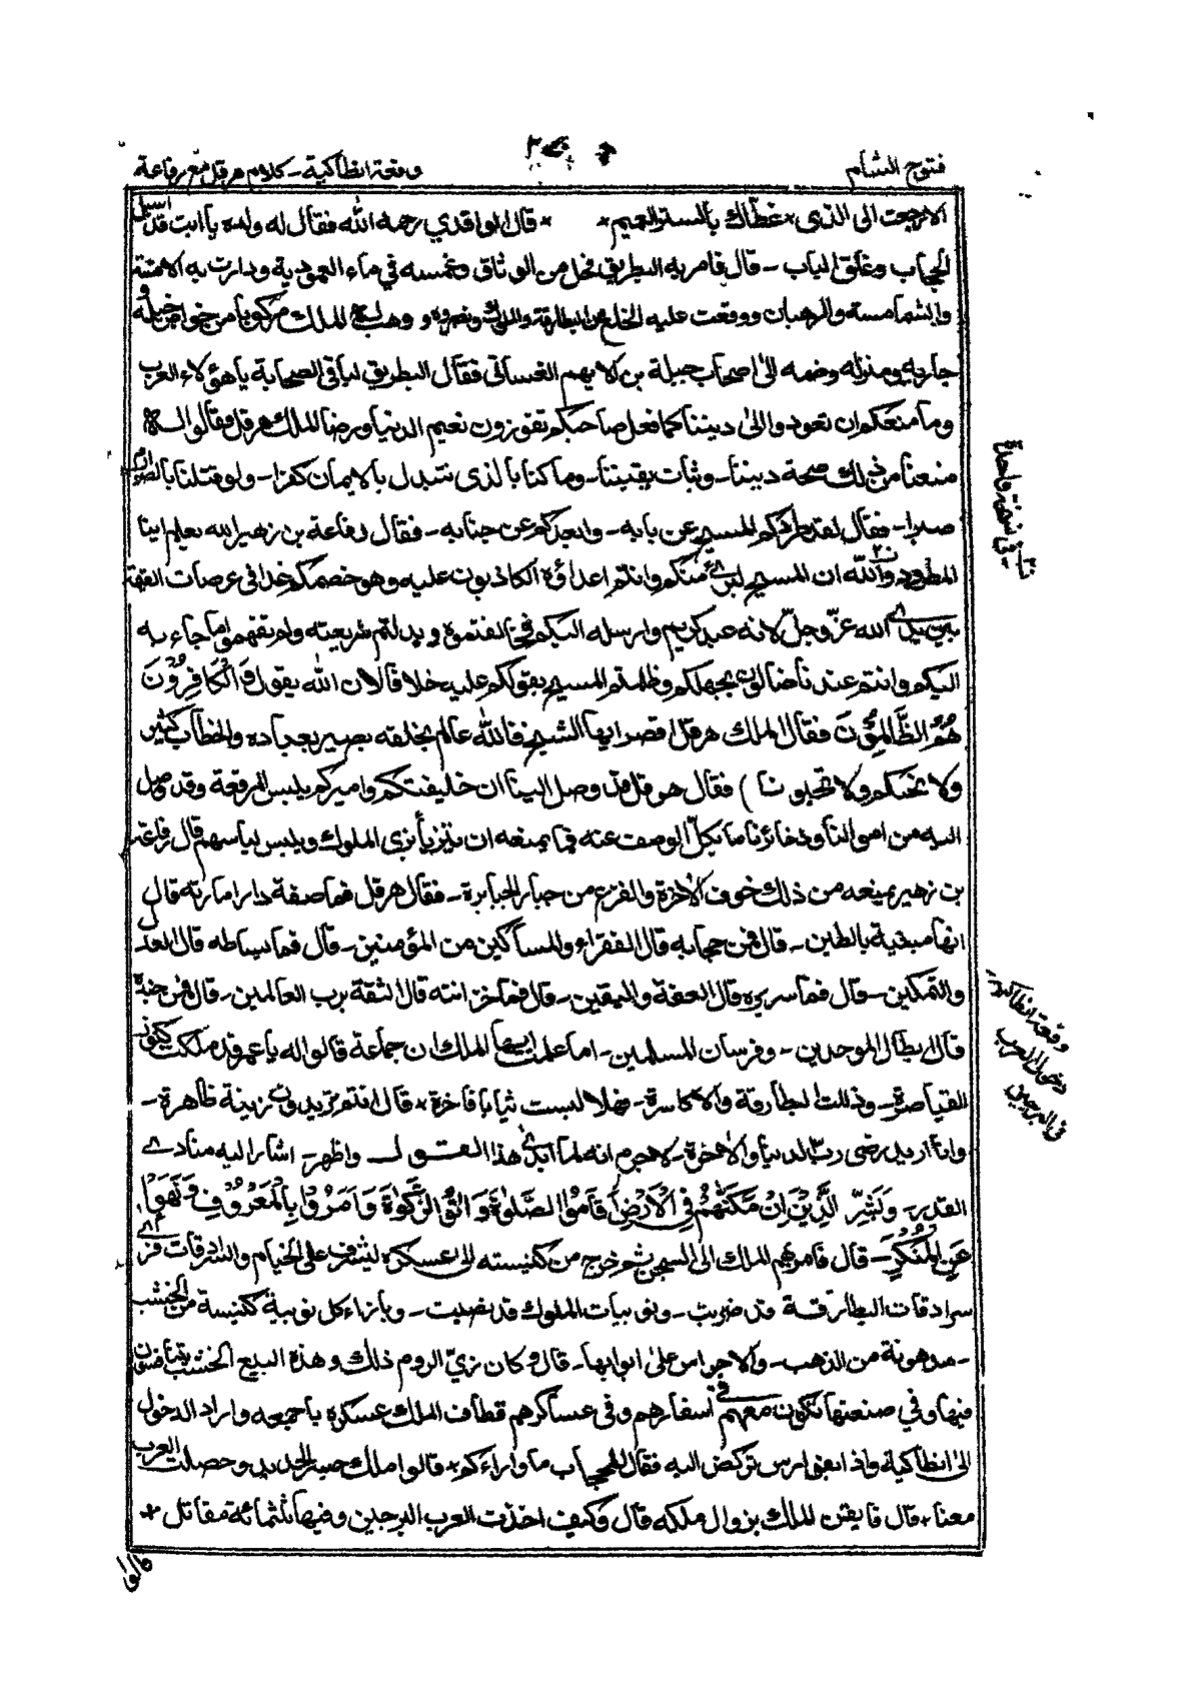 فتوح الشام
وقعة انطاكية - كلام هرقل مع رفاعة
الا رجعت الى الذى غطاك بالستر العميم * قال الواقدي رحمه الله فقال له ولده يا ابت قد اسبل
الحجاب وغلق الباب - قال فامر به البطريق فحل من الوثاق وغمسه في ماء العمودية ودارت به الاقسة
والشمامسة والرهبان ووقعت عليه الخلع من البطارقة والملوك ووهب له الملك مركوبا من خواص خيله و
جارية ومنزله وضمه الى اصحاب جبلة بن الايهم الغساني فقال البطريق لباقي الصحابة يا هؤلاء العرب
وما منعكم ان تعودوا الى ديننا كما فعل صاحبكم تفوزون نعيم الدنيا ورضا الملك هرقل فقالوا له
منعنا من ذلك صحة ديننا - وثبات يقيننا - وما كنا بالذى نتبدل بالايمان كفرا - ولو قتلنا بالصوارم
صبرا - فقال لقد طردكم المسيح عن بابه - وابعدكم عن جنابه - فقال رفاعة بن زهير الله يعلم اينا
المطرود والله ان المسيح لبرئ منكم وانتم اعداؤه الكاذبون عليه وهو خصمكم غدا في عرصات القيمة
بين يدى الله عز وجل لانه عبد كريم وارسله اليكم فخالفتموه وبدلتم شريعته ولم تفهموا ما جاء به
اليكم وانتم عندنا ضالون بجهلكم وظلمتم المسيح بقولكم عليه خلاف الان الله يقول وَالْكَافِرُونَ
هُمُ الظَّالِمُوْنَ فقال الملك هرقل اقصر ايها الشيخ فالله عالم بخلقه بصير بعباده والخطاب كثير
ولا نحبكم ولا تحبونا) فقال هرقل قد وصل الينا ان خليفتكم واميركم يلبس المرقعة وقد وصل
اليه من اموالنا وذخائرنا ما يكل الوصف عنه فما يمنعه ان يتزيا بزى الملوك ويلبس لباسهم قال رفاعة
بن زهير يمنعه من ذلك خوف الاخرة والفزع من جبار الجبابرة - فقال هرقل فما صفة دار امارته قال
انها مبنية بالطين - قال فمن حجابه قال الفقراء والمساكين من المؤمنين - قال فما بساطه قال العدل
والتمكين - قال فما سريره قال العفة واليقين - قال فما خزانته قال الثقة برب العالمين - قال فمن جنده
قال ابطال الموحدين - وفرسان المسلمين - اما علمت ايها الملك ان جماعة قالوا له يا عمر قد ملكت كنوز
القياصرة - وذلت لك البطارقة والاكاسرة - فهلا لبست ثيابا فاخرة * قال انتم تريدون زينة ظاهرة -
وانا اريد رضى رب الدنيا والاخرة - لا جرم انه لما ابدى هذا القول - واظهر - اشار اليه منادى
القدر - وَبَشِّرِ الَّذِيْنَ اِنْ مَكَّنَّاهُمْ فِي الْاَرْضِ اَقَامُوا الصَّلٰوةَ وَ اٰتَوُا الزَّكٰوةَ وَ اَمَرُوْا بِالْمَعْرُوْفِ وَ نَهَوْا
عَنِ الْمُنْكَرِ - قال فامر بهم الملك الى السجن ثم خرج من كنيسته الى عسكره ليشرف على الخيام والسرادقات فرأى
سرادقات البطارقة قد ضربت - ونوبيات الملوك قد نصبت - وبازاء كل نوبية كنيسة من الخشب
- مدهونة من الذهب - والاجراس على ابوابها - قال وكان زي الروم ذلك وهذه البيع الخشب
فيها وفي صنعتها تكون معهم فى اسفارهم وفى عساكرهم فطاف الملك عسكره باجمعه واراد الدخول
الى انطاكية واذا بفوارس تركض اليه فقال للحجاب ما وراءكم * قالوا ملك جسر الحديد وحصلت العرب
معنا * قال فايقن الملك بزوال ملكه قال وكيف اخذت العرب البرجين وفيهما ثلثمائة مقاتل *
فى نسخة واحدة
وقعة انطاكية
دخول العرب
فى البرجين
قالوا